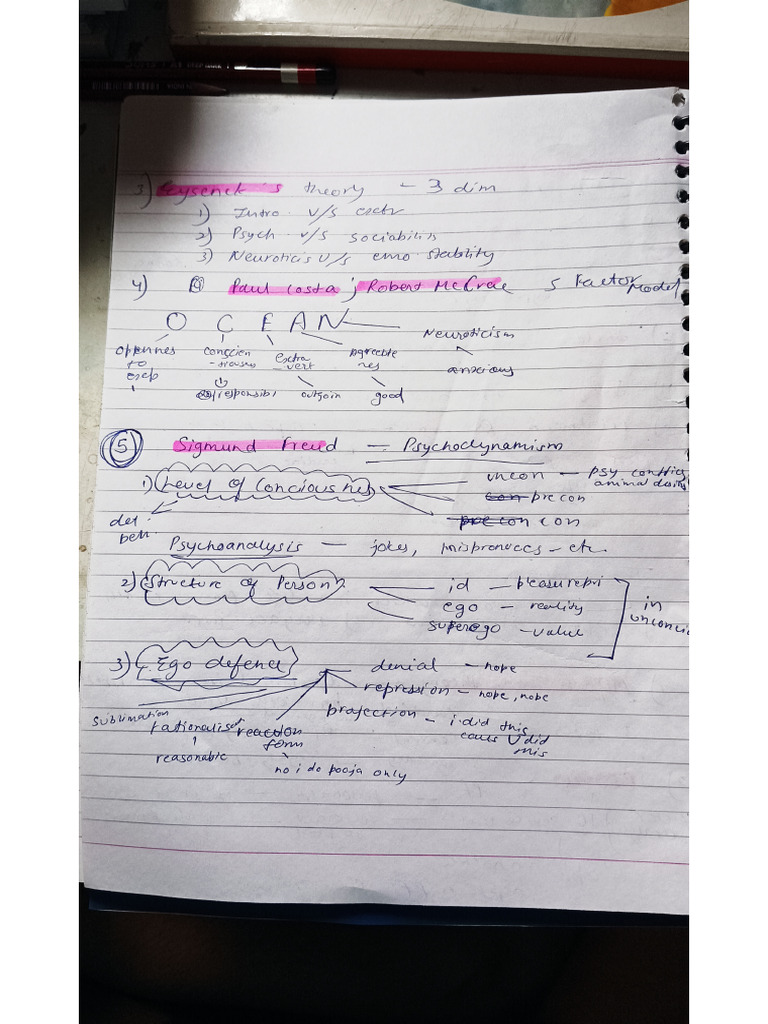 3) Eysenck's theory - 3 dim
1) Intro v/s extr
2) Psych v/s sociabilis
3) Neuroticis v/s emo stability
4) Paul Costa ; Robert McCrae 5 Factor Model
O C E A N
Neuroticism
oppennes to exep
conscien
extra vert
agreeable nes
anxious
responsibl
outgoin
good
5 Sigmund Freud = Psychodynamism
1) Level of Conciousnes
uncon - psy conflics animal
con precon
precon con
det beh
Psychoanalysis - jokes, etc.
2) Structure of Person
id - pleasurepri
ego - reality
superego - value
in unconcio
3) Ego defence
denial - nope
repression - nope, nope
projection - i did this caus U did this
sublimation
rationalisat
reasonable
reaction form
no i do pooja only